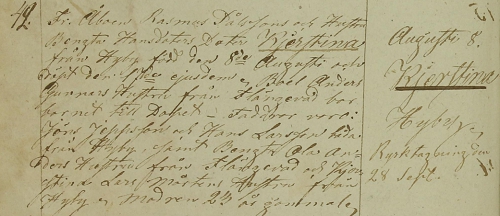 42. Fr. Åboen Rasmus Nilssons och Hustru
Bengta Hansdoters Doter Kjerstina
från Hyby född den 8de Augusti och
döpt den ejusdem, Boel Anders
Gunners Hustru från Slängevad bar
barnet till Dopet – Faddrar voro:
Jöns Jeppsson och Hans Larsson båda
från Hyby, samt Bengta Ola An-
ders Hustru från Slängevad och Kjer-
stina Lars Mårtens Hustru från
Hyby, Modren 23 år gammal,
Augusti 8.
Kjerstina
Hyby,
Kyrktagning den
28 Sept.